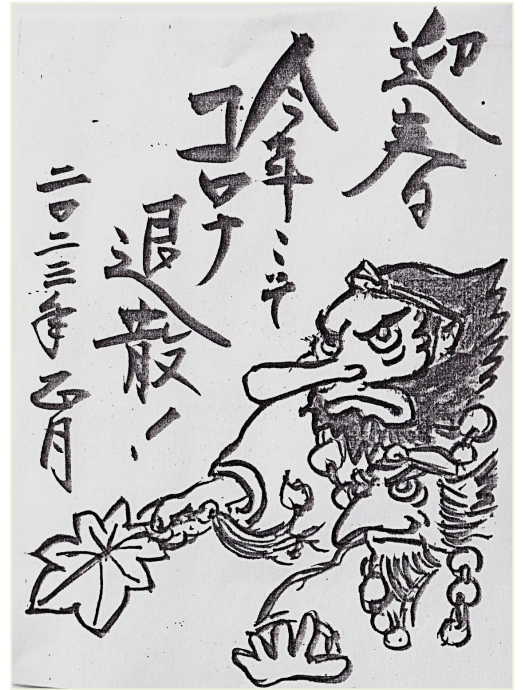 迎春
今年こそ
コロナ
退散！
二〇二三年 正月